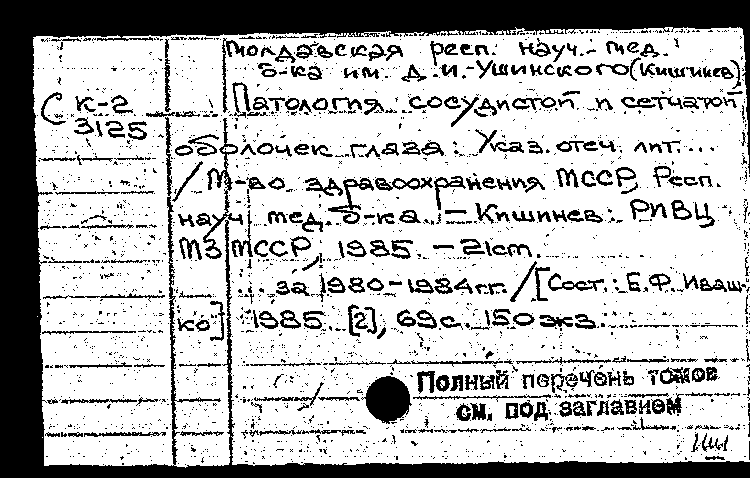 Молдавская респ. науч.-мед.
б-ка им. Д.И. Ушинского (Кишинев)
С К-2 Патология сосудистой и сетчатой
3125
оболочек глаза: Указ. отеч. лит...
/ М-во здравоохранения МССР, Респ.
науч. мед. б-ка. — Кишинев: РИВЦ
МЗ МССР, 1985. — 21см.
... за 1980-1984 гг. / [Сост.: Е.Ф. Иваш-
ко] 1985. [2], 69 с. 150 экз.
Полный перечень томов
см. под заглавием